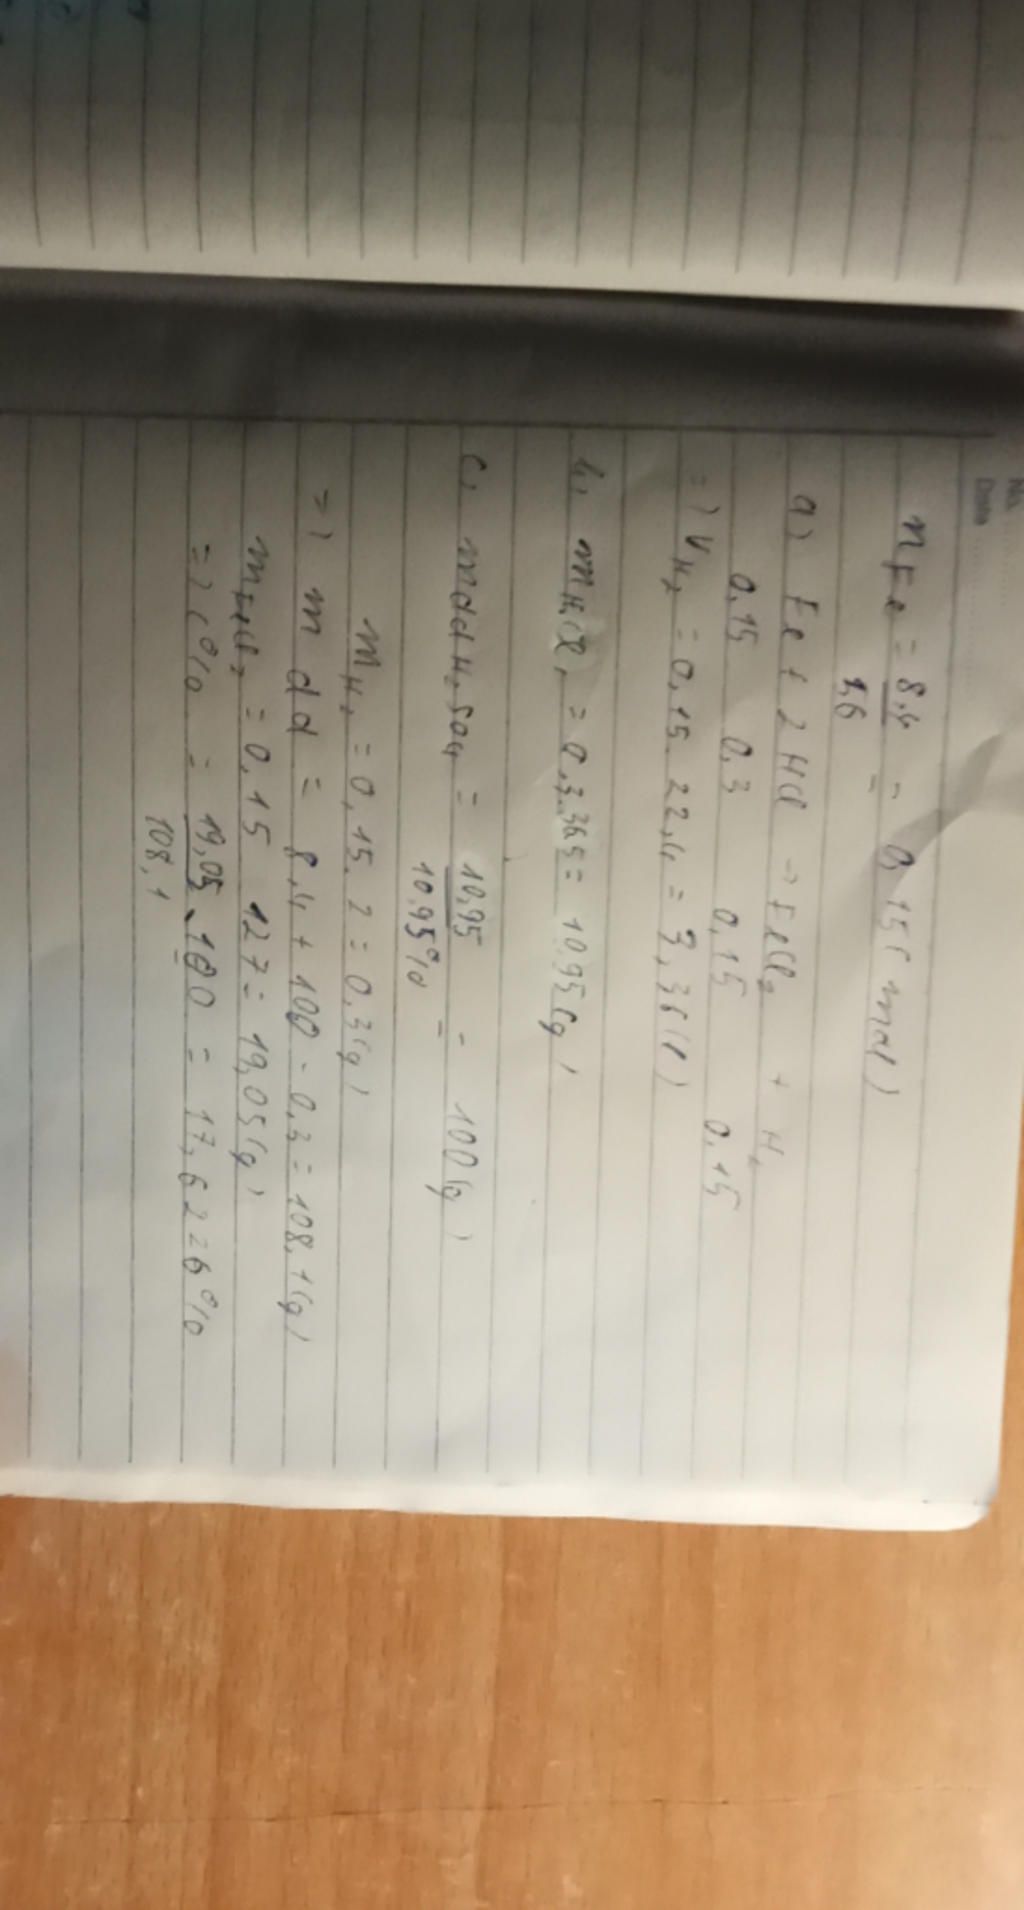 No.
Date
nFe = 8,4 = 0,15 (mol)
5,6
a) Fe + 2HCl → FeCl2 + H2
0,15 0,3 0,15 0,15
=) VH2 = 0,15. 22,4 = 3,36 (l)
= 0,3.36,5 = 10,95 (g)
c, mddH2SO4 = 10,95 = 100 (g)
10,95%
mH2 = 0,15. 2 = 0,3 (g)
=) m dd = 8,4 + 100 - 0,3 = 108,1 (g)
mFeCl2 = 0,15 127 = 19,05 (g)
=) C% = 19,05.100 = 17,6226%
108,1